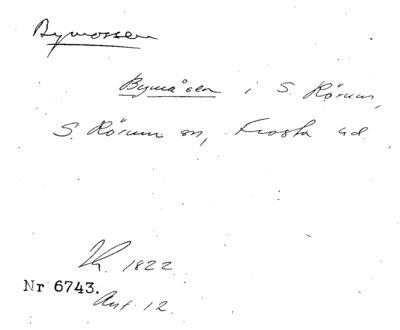 Bymossen
Bymåsen i S. Rörum,
S. Rörum sn, Frosta hd
1822
Nr 6743.
Ant. 12.